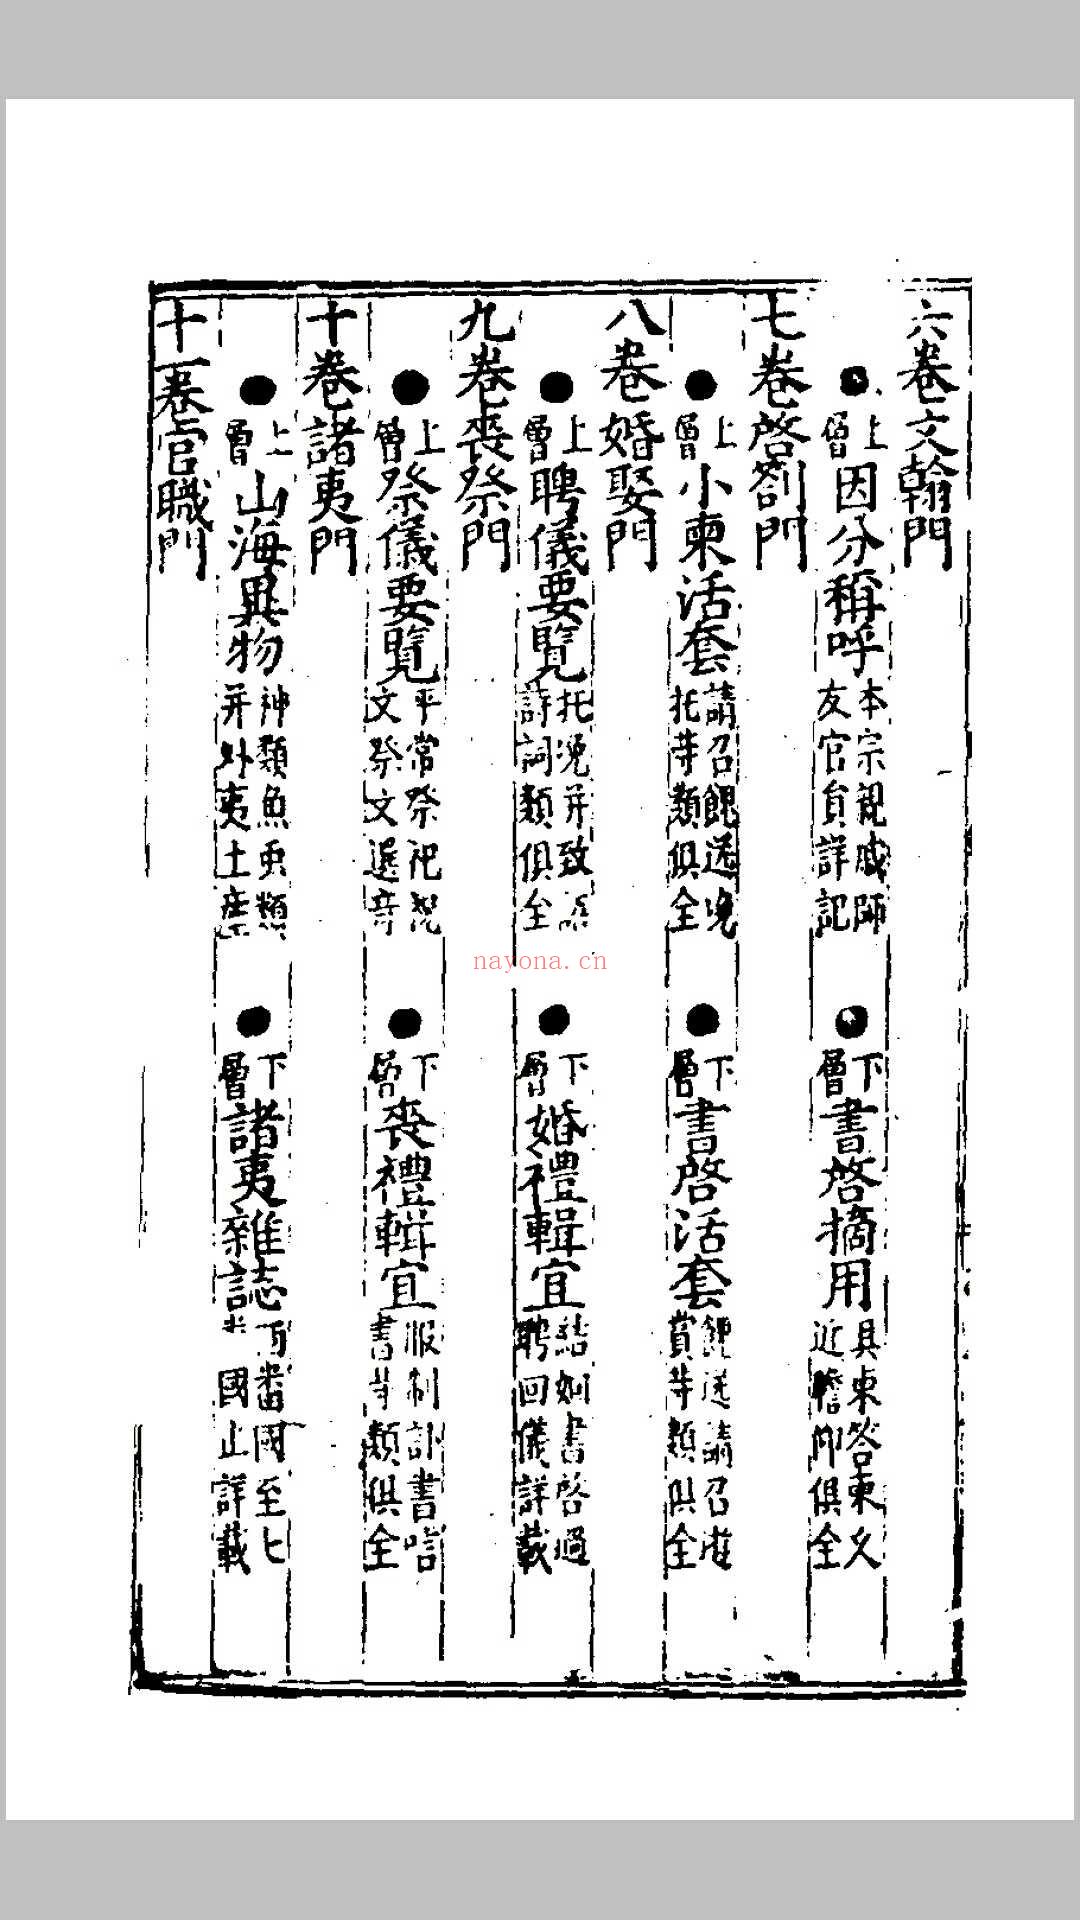 六卷文翰門
●上層因分稱呼本宗親戚師友官員詳記
●下層書啓摘用具柬答柬久近瞻仰俱全
七卷啓劄門
●上層小柬活套請召餽送晚托等類俱全
●下層書啓活套餽送請召賞等類俱全
八卷婚娶門
●上層聘儀要覽托并致詩詞類俱全
●下層婚禮輯宜結姻書啓過聘回儀詳載
九卷喪祭門
●上層祭儀要覽平常祭祀祝文祭文選奇
●下層喪禮輯宜服制訃書唁書等類俱全
十卷諸夷門
●上層山海異物神類魚虫類并外夷土産
●下層諸夷雜誌百番國至七國止詳載
十一卷官職門
nayona.cn